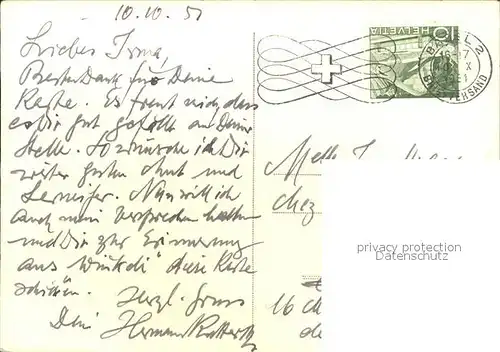 10.10.51
Liebes Irma,
Besten Dank für Deine
Karte. Es freut mich, dass
es Dir gut gefällt an Deiner
Stelle. So wünsche ich Dir
weiter guten Mut und
Lerneifer. Nun will ich
auch mein Versprechen halten
und Dir zur Erinnerung
aus diese Karte
schicken.
Herzl. Gruss
Dein Hermann
HELVETIA
10
BASEL 2
BRIEFVERSAND
Melle
chez
16 ch
de
privacy protection
Datenschutz